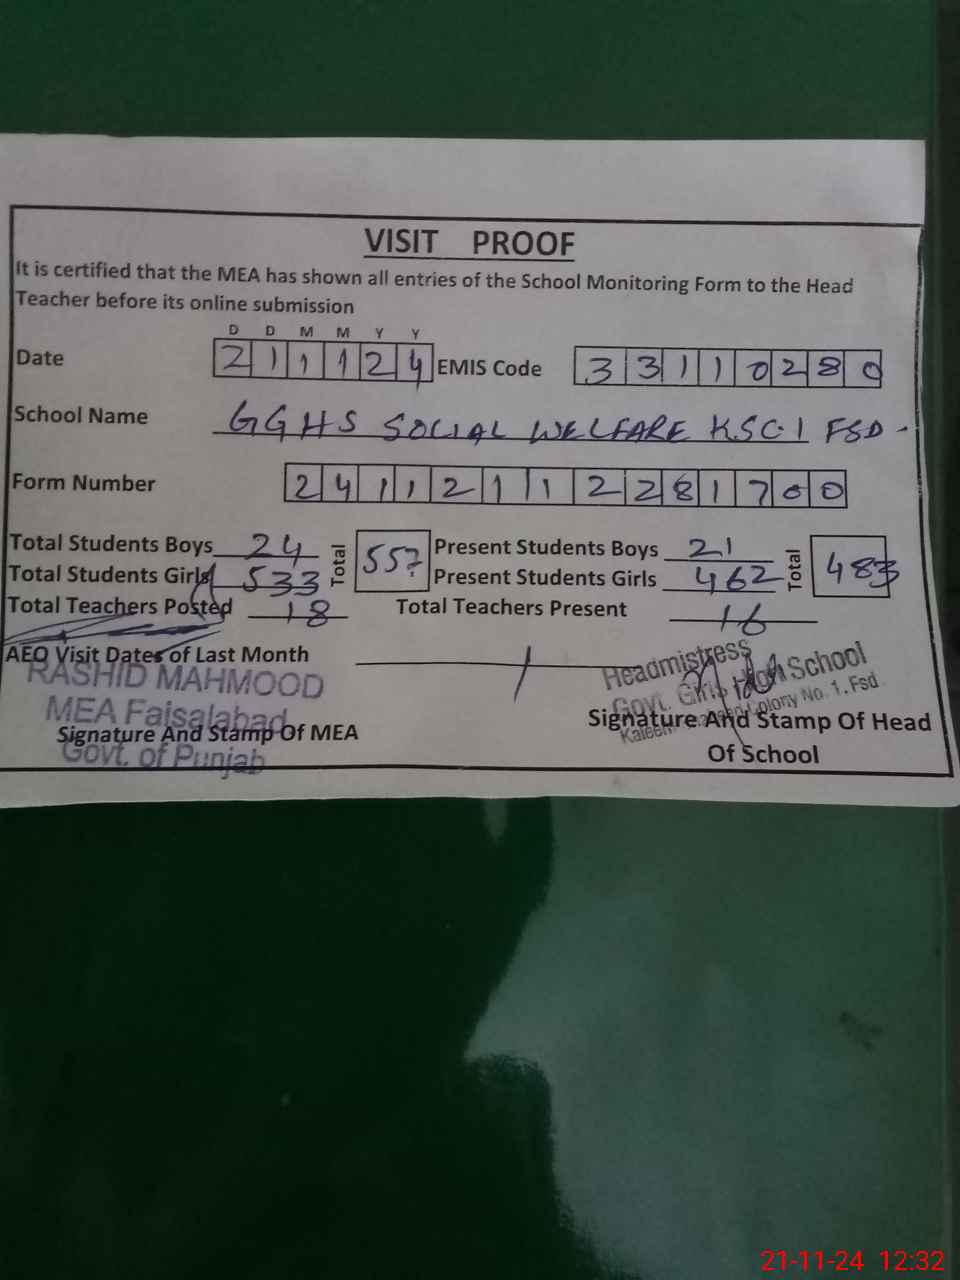 VISIT PROOF
It is certified that the MEA has shown all entries of the School Monitoring Form to the Head
Teacher before its online submission
D D M M Y Y
Date 211124 EMIS Code 33110280
School Name GGHS SOCIAL WELFARE KSC-1 FSD-
Form Number 2411211228 1700
Total Students Boys 24 Total 557 Present Students Boys 21 Total 483
Total Students Girls 533 Present Students Girls 462
Total Teachers Posted 18 Total Teachers Present 16
AEO Visit Dates of Last Month
RASHID MAHMOOD
MEA Faisalabad
Govt. of Punjab
Signature And Stamp Of MEA
Headmistress
Govt. Girls High School
Colony No. 1, Fsd
Signature And Stamp Of Head
Of School
21-11-24 12:32